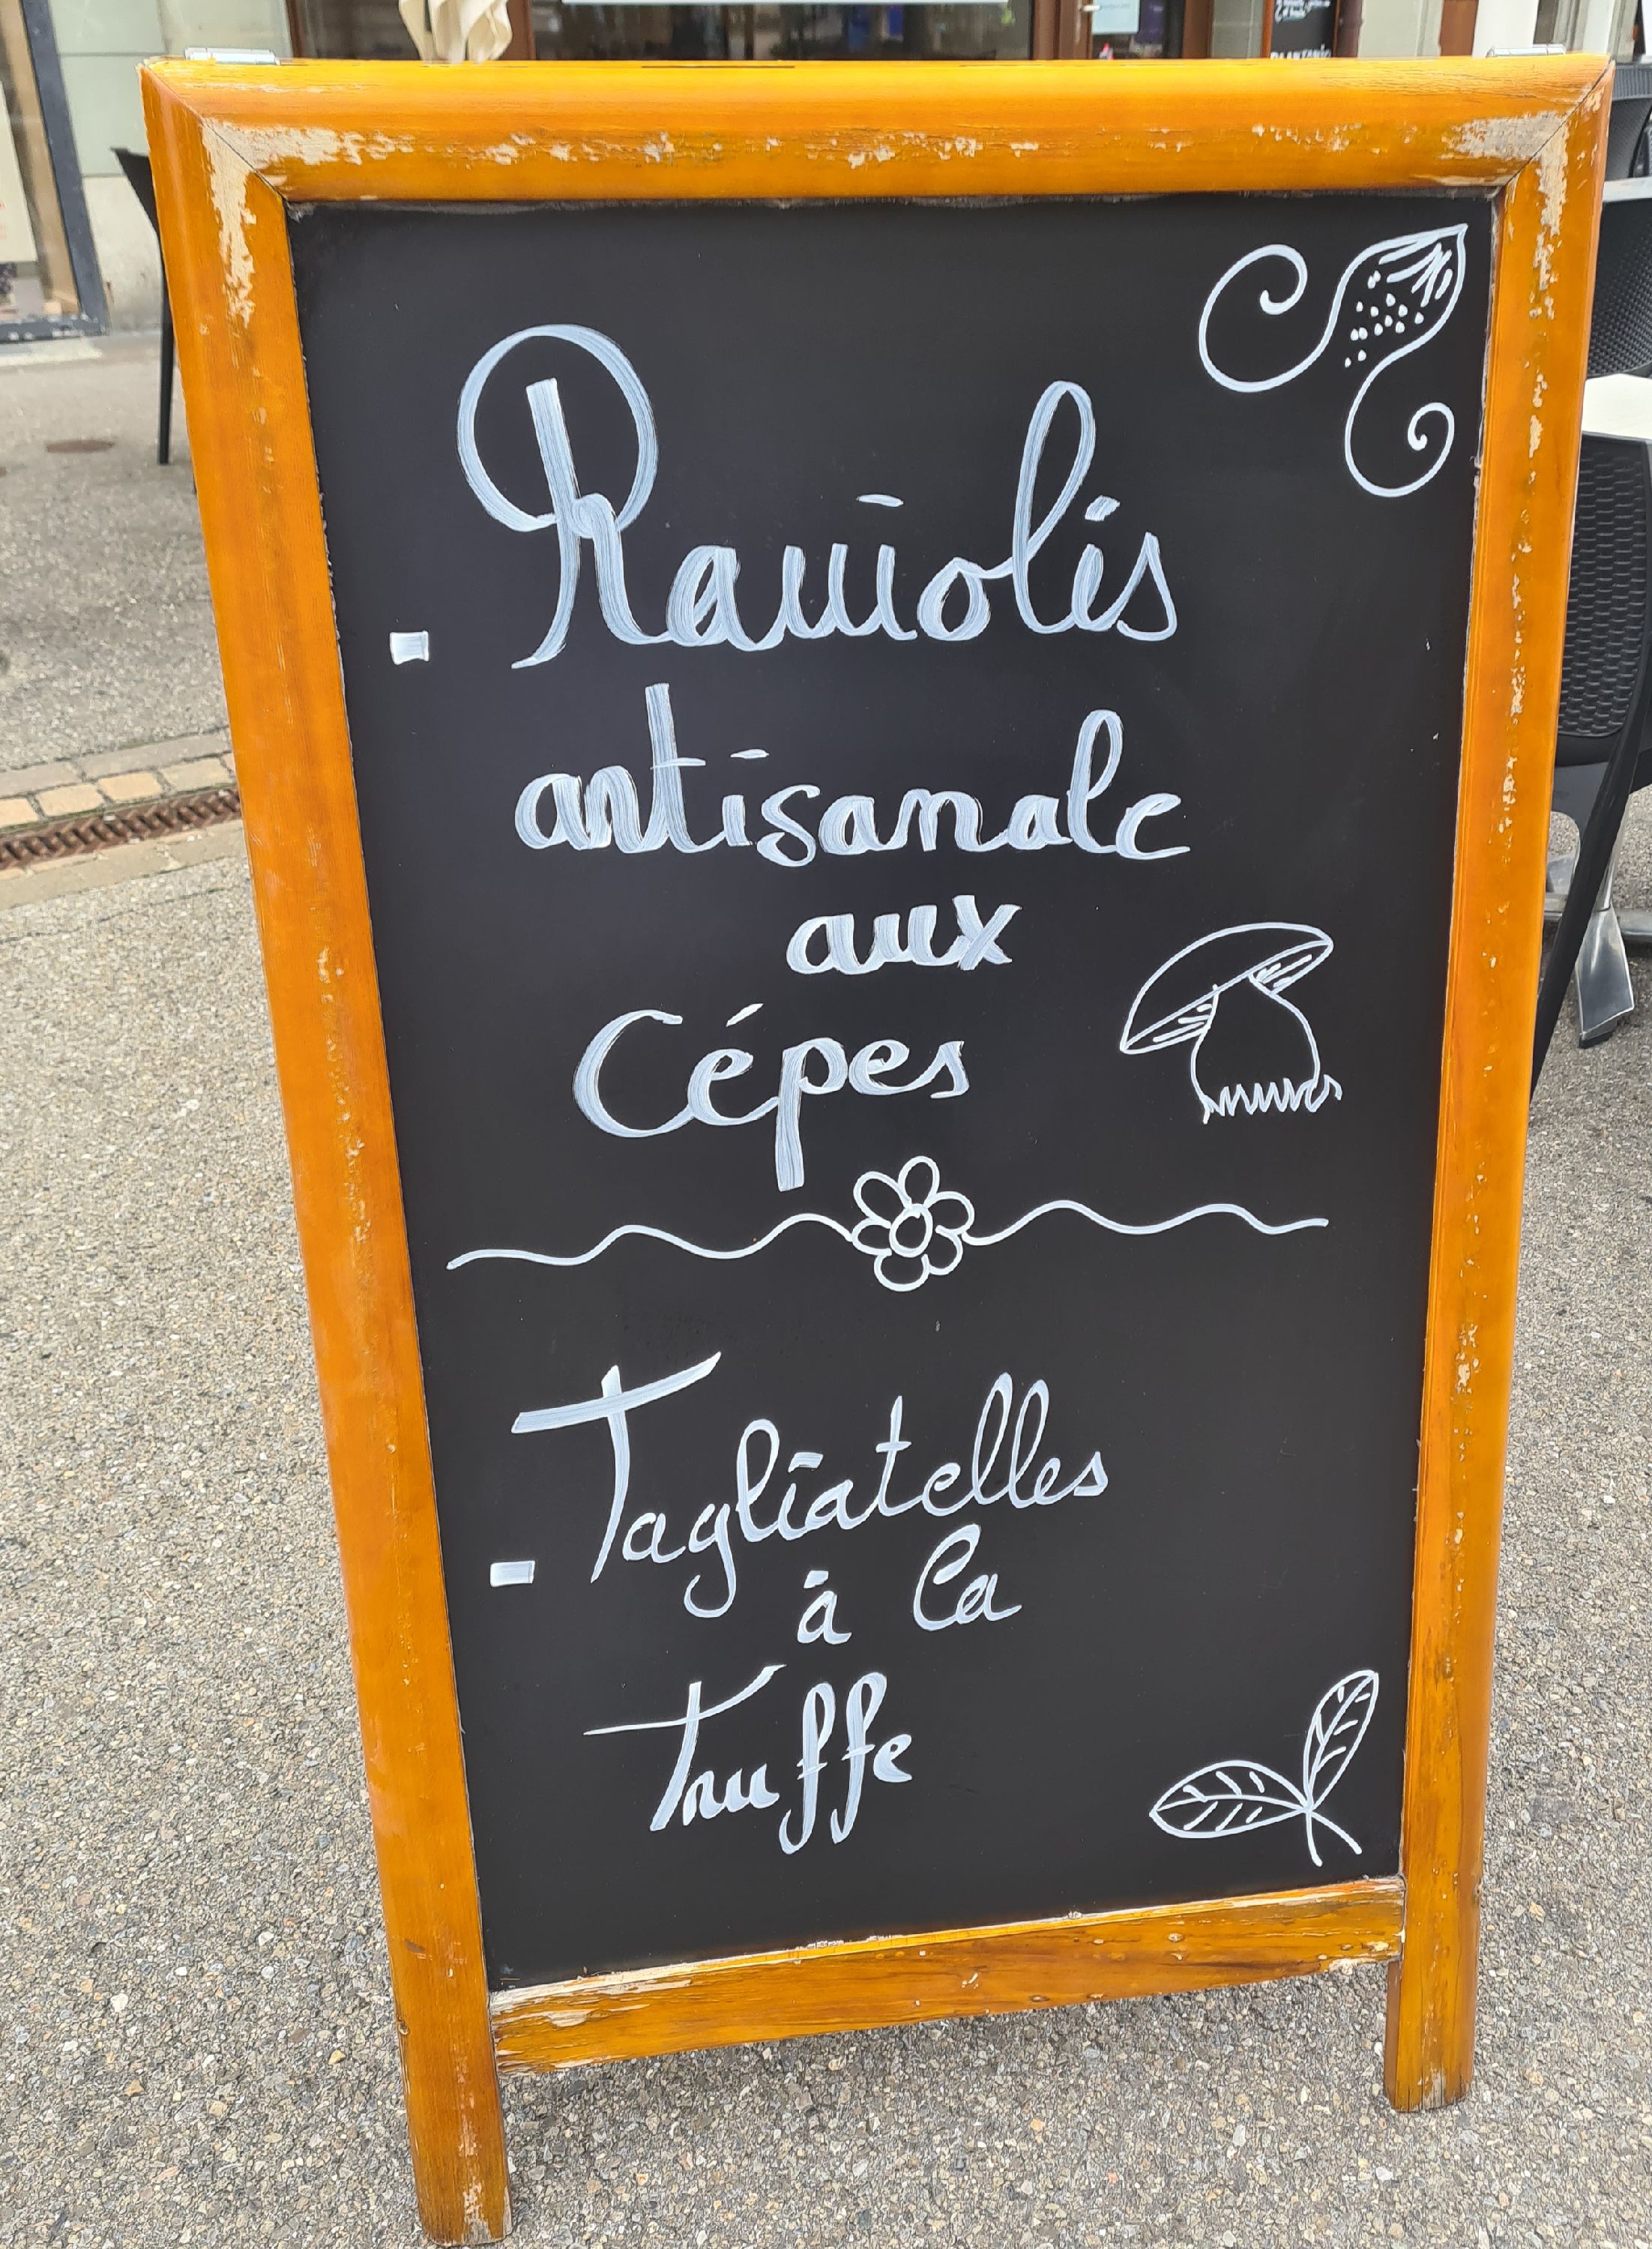 - Raviolis
artisanale
aux
Cépes
- Tagliatelles
à la
Truffe